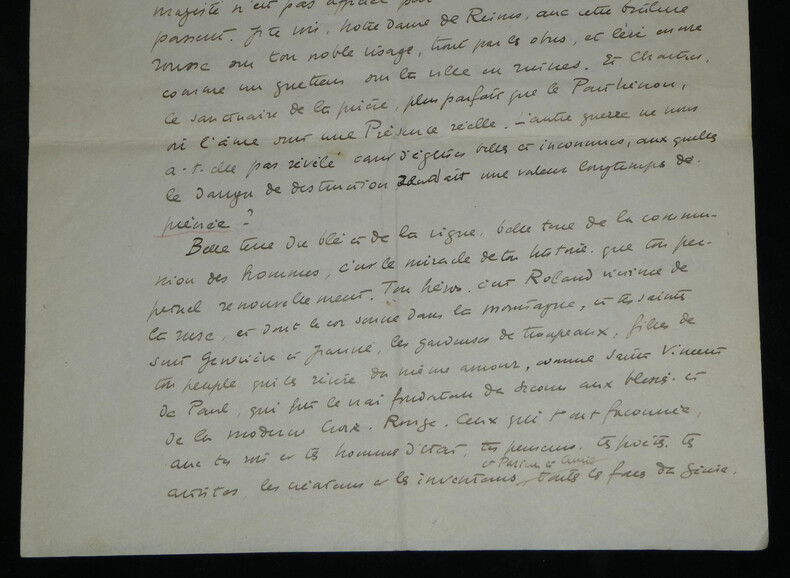 majesté n'est pas
passent. Je te vois, Notre Dame de Reims, avec cette brûlure
rousse sur ton noble visage, par les obus, et
comme un guetteur sur la ville en ruines. Et Chartres,
le sanctuaire de la prière, plus parfait que le Parthénon,
où l'âme sent une Présence réelle. L'autre guerre ne nous
a-t-elle pas révélé d'églises belles et inconnues, auxquelles
le danger de destruction rendait une valeur longtemps dé-
préciée ?
Belle terre du blé et de la vigne, belle terre de la commu-
nion des hommes, c'est le miracle de ton histoire que ton per-
pétuel renouvellement. Ton héros, c'est Roland victime de
la ruse, et dont le cor sonne dans la montagne, et tes saintes
sont Geneviève et Jeanne, les gardeuses de troupeaux, filles de
ton peuple du même amour, comme Saint Vincent
de Paul, qui fut le vrai fondateur du secours aux blessés et
de la moderne Croix-Rouge. Ceux qui t'ont façonnée,
avec tes rois et tes hommes d'état, tes penseurs, tes poètes, tes
et
artistes, les créateurs et les inventeurs, toute la du génie.